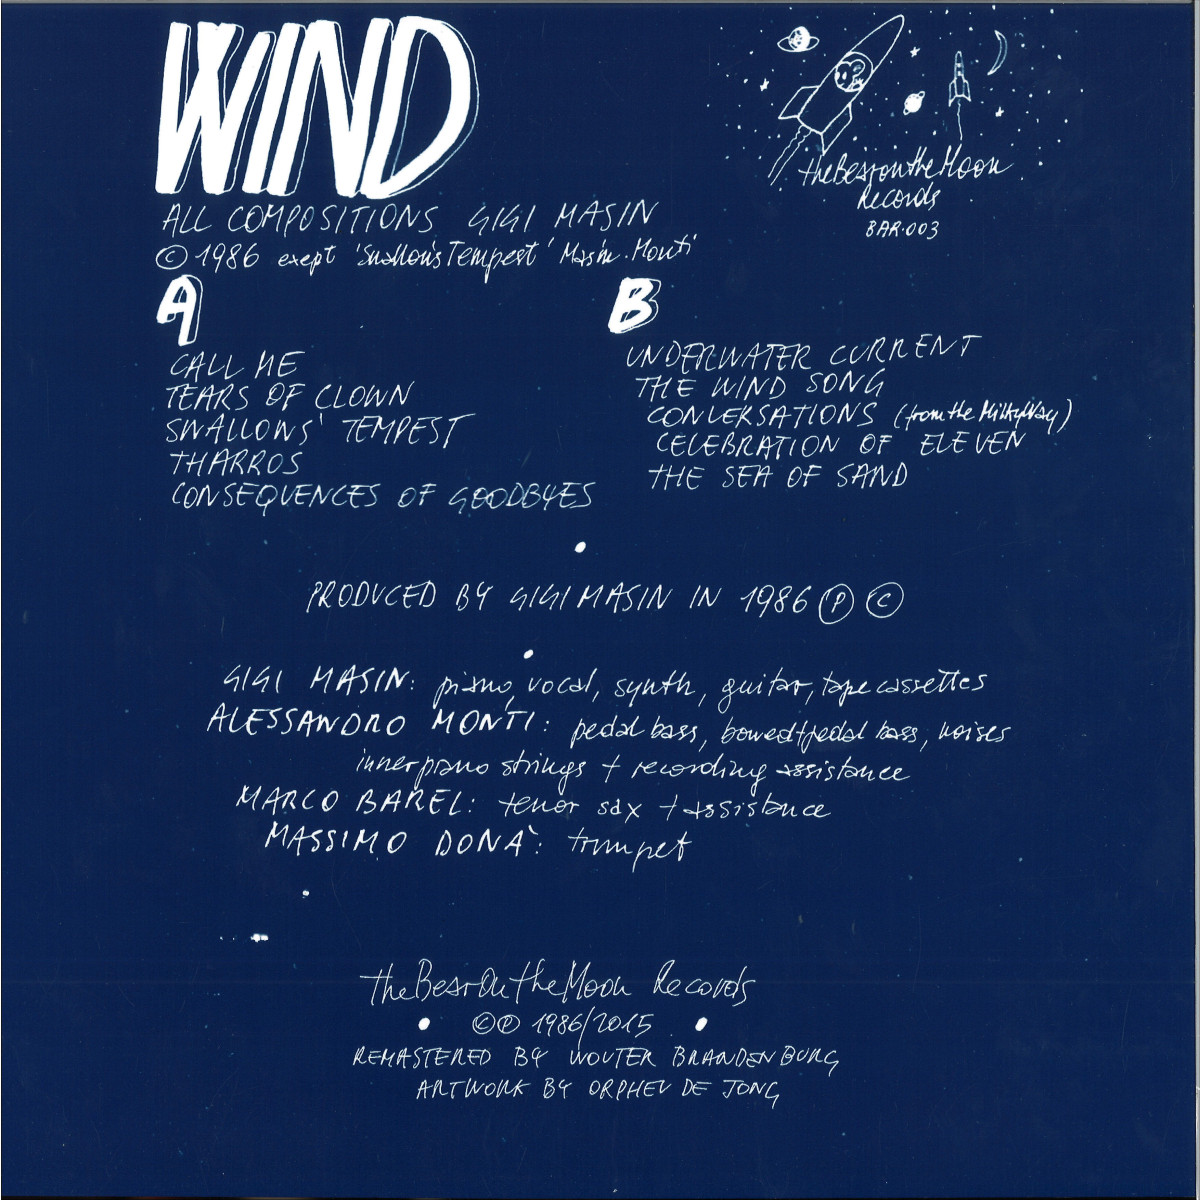 WIND
theBearontheMoon
Records
BAR.003
ALL COMPOSITIONS GIGI MASIN
© 1986 exept 'Swallow's Tempest' Masin. Monti
A
CALL ME
TEARS OF CLOWN
SWALLOWS' TEMPEST
THARROS
CONSEQUENCES OF GOODBYES
B
UNDERWATER CURRENT
THE WIND SONG
CONVERSATIONS (from the MilkyWay)
CELEBRATION OF ELEVEN
THE SEA OF SAND
PRODUCED BY GIGI MASIN IN 1986 Ⓟ ©
GIGI MASIN: piano, vocal, synth, guitar, tape cassettes
ALESSANDRO MONTI: pedal bass, bowed+pedal bass, noises
inner piano strings + recording assistance
MARCO BAREL: tenor sax + assistance
MASSIMO DONA': trumpet
theBearOntheMoon Records
©Ⓟ 1986/2015
REMASTERED BY WOUTER BRANDENBURG
ARTWORK BY ORPHEU DE JONG